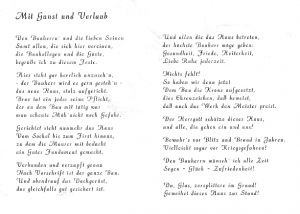 Mit Gunst und Verlaub
Den Bauherrn und die lieben Seinen
Samt allen, die sich hier vereinen,
die Baukollegen und die Gäste,
begrüße ich zu diesem Feste.
Hier steht gar herrlich anzuseh'n,
- der Bauherr wird es gern gesteh'n -
das neue Haus, stolz aufgericht.
Brav tat ein jeder seine Pflicht,
der an dem Bau mit tätig war
und scheute Müh' nicht noch Gefahr.
Gerichtet steht nunmehr das Haus
Vom Sockel bis zum First hinaus,
zu dem die Maurer mit bedacht
ein Gutes Fundament gemacht.
Verbunden und verzapft genau
Nach Vorschrift ist der ganze Bau.
Und obendrauf das Dachgerüst,
das gleichfalls gut gesichert ist.
Und allen die das Haus betreten,
der höchste Bauherr möge geben:
Gesundheit, Friede, Heiterkeit,
Liebe Ruhe jederzeit.
Nichts fehlt!
So haben wir denn jetzt
Dem Bau die Krone aufgesetzt,
dies Ehrenzeichen, daß bewußt,
daß auch das Werk den Meister preist.
Der Herrgott schütze dieses Haus,
und alle, die gehen ein und aus!
Bewahr's vor Blitz und Brand in Jahren.
Vielleicht sogar vor Kriegsgefahren!
Den Bauherrn wünsch' ich alle Zeit
Segen - Glück - Zufriedenheit!
Du, Glas, zersplittere im Grund!
Geweihet dieses Haus zur Stund!